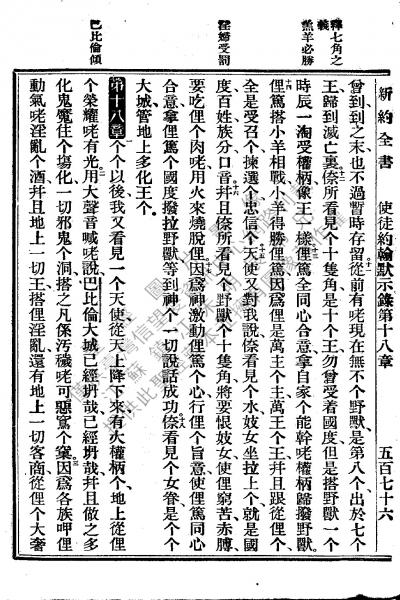 新約全書　使徒約翰默示錄第十八章　五百七十六
釋七角之義
羔羊必勝
淫婦受罰
巴比倫傾
曾到到之末也不過暫時存留從前有咾現在無不个野獸是第八个出於七个
王歸到滅亡裏倷所看見个十隻角是十个王勿曾受着國度但是搭野獸一个
時辰一淘受權柄像王一樣俚篤全同心合意拿自家个能幹咾權柄歸撥野獸
俚篤搭小羊相戰小羊得勝俚篤因爲俚是萬主个主萬王个王幷且跟從俚个
全是受召个揀選个忠信个天使又對我說倷看見个水妓女坐拉上个就是國
度百姓族分口音幷且倷所看見个野獸个十隻角將要恨妓女使俚窮苦赤膊
要吃俚个肉咾用火來燒脫俚因爲神激動俚篤个心行俚个旨意使俚篤同心
合意拿俚篤个國度撥拉野獸等到神个一切說話成功倷看見个女眷是个个
大城管地上多化王个
第十八章 个个以後我又看見一个天使從天上降下來有大權柄个地上從俚
个榮耀咾有光用大聲音喊咾說巴比倫大城已經坍哉已經坍哉幷且做之多
化鬼魔住个塲化一切邪鬼个洞搭之凡係汚穢咾可惡鳥个窠因爲各族呷俚
動氣咾淫亂个酒幷且地上一切王搭俚淫亂還有地上一切客商從俚个大奢